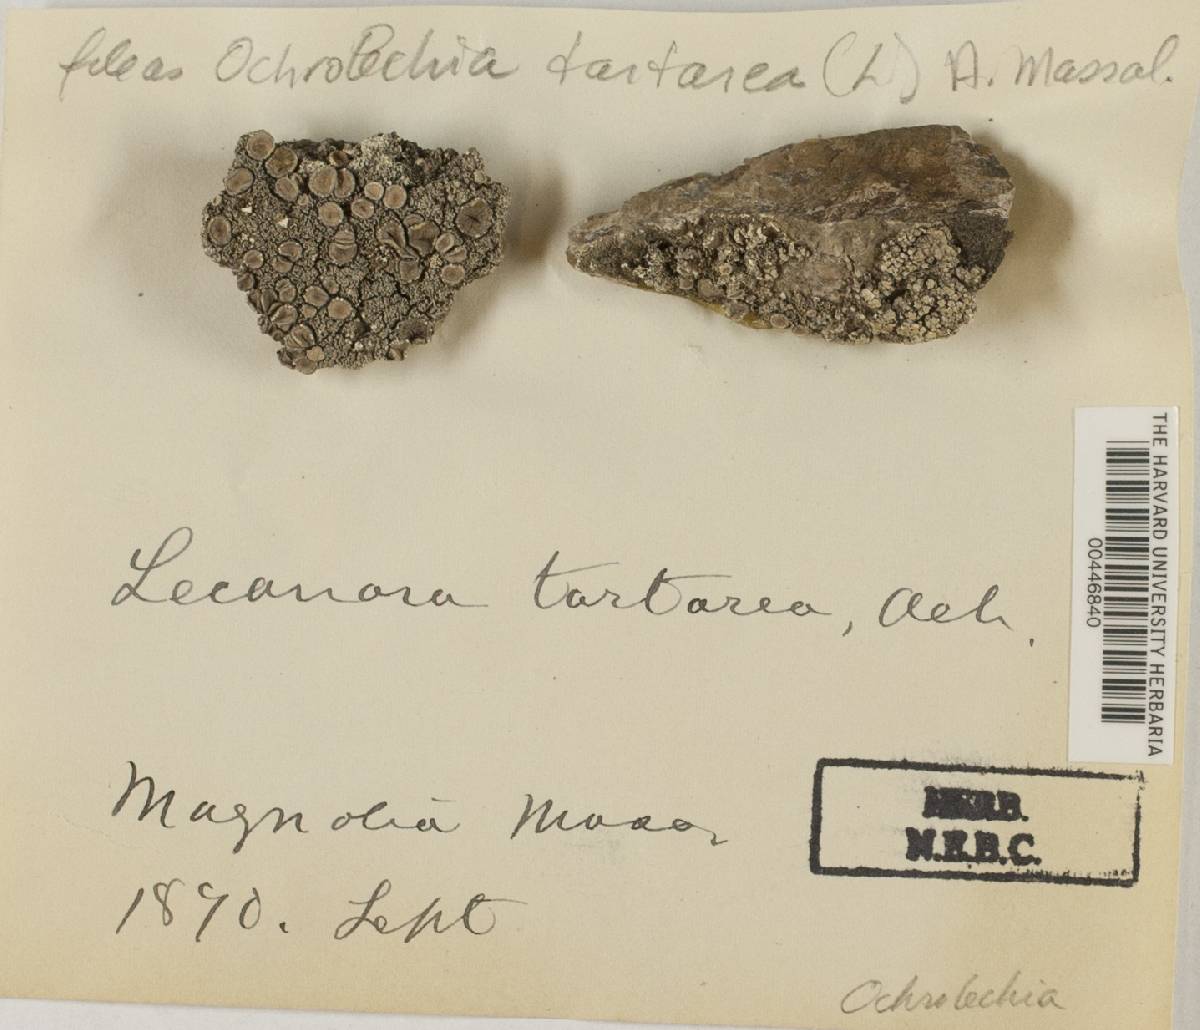 filed as Ochrolechia tartarea (L) A. Massal.
Lecanora tartarea, Ach.
THE HARVARD UNIVERSITY HERBARIA
00446840
Magnolia Mass
1890. Sept
HERB.
N.E.B.C.
Ochrolechia